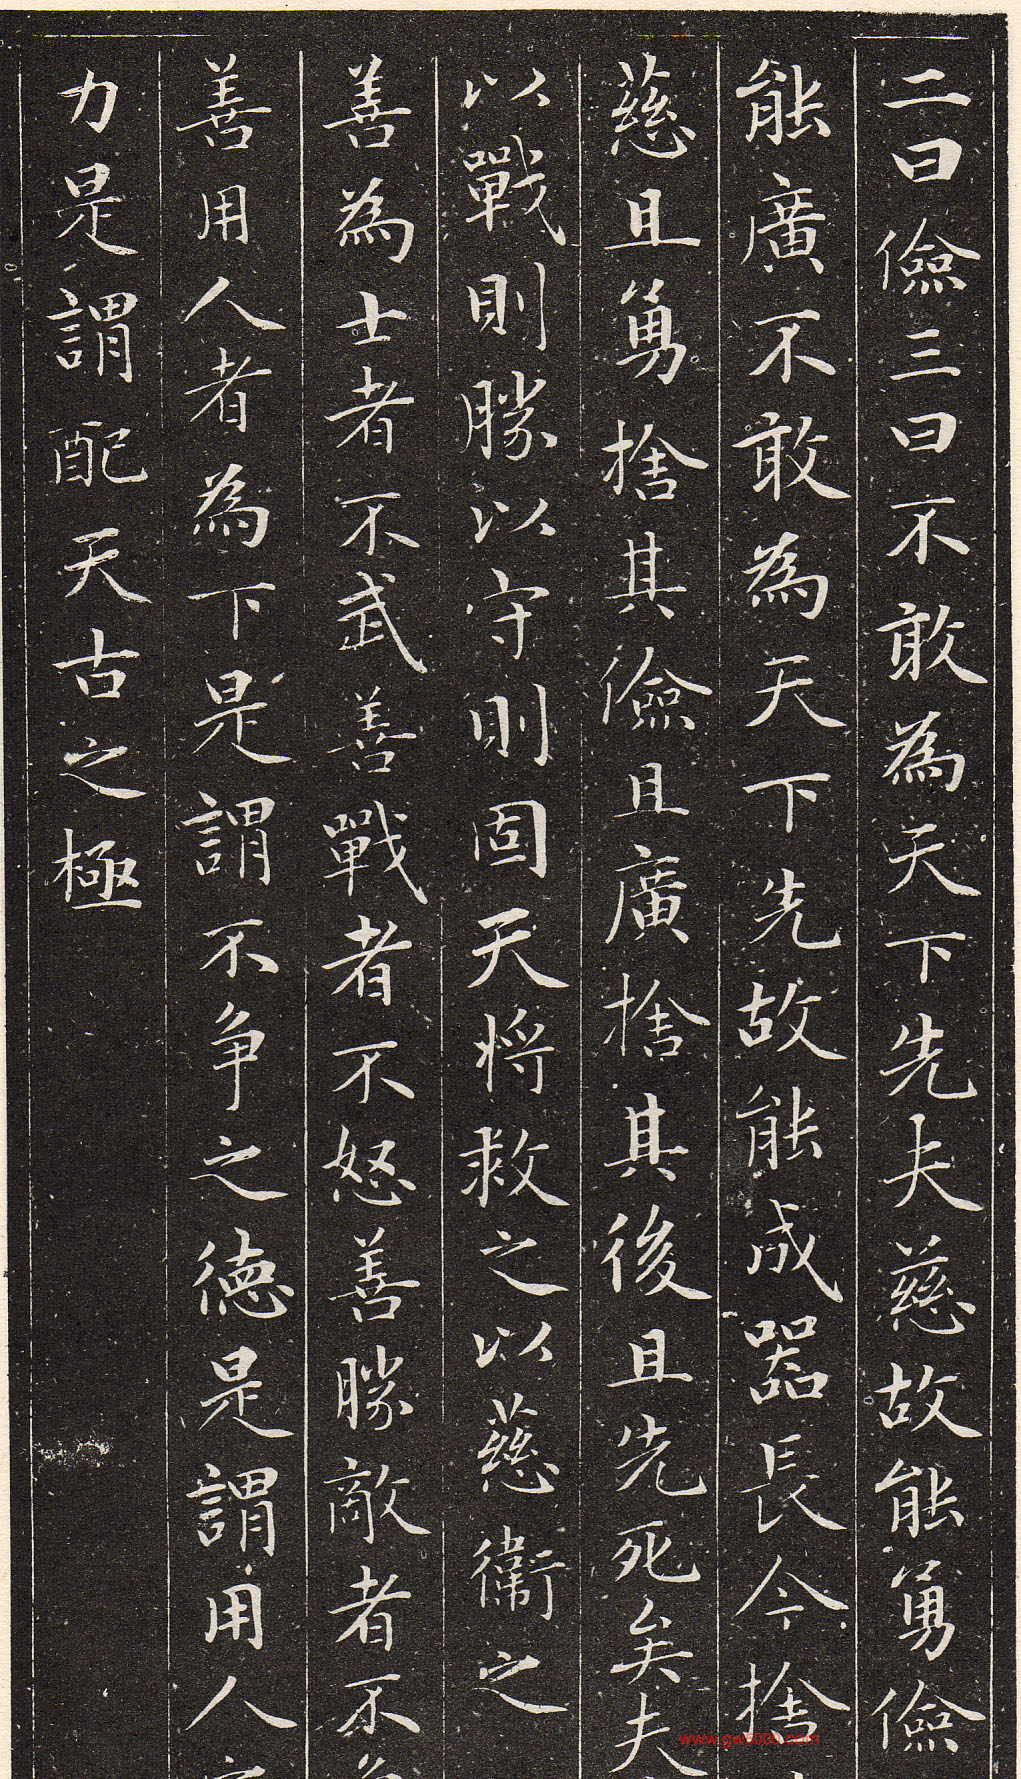 二曰儉三曰不敢為天下先夫慈故能勇儉
能廣不敢為天下先故能成器長今捨
慈且勇捨其儉且廣捨其後且先死矣夫
以戰則勝以守則固天將救之以慈衛之
善為士者不武善戰者不怒善勝敵者不
善用人者為下是謂不争之德是謂用人
力是謂配天古之極